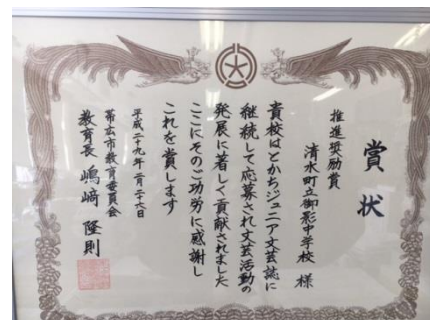 賞状
推進奨励賞
清水町立御影中学校 様
貴校はとかちジュニア文芸誌に
継続して応募され文芸活動の
発展に著しく貢献されました
ここにそのご功労に感謝し
これを賞します
平成二十九年二月二十六日
帯広市教育委員会
教育長 嶋﨑 隆則